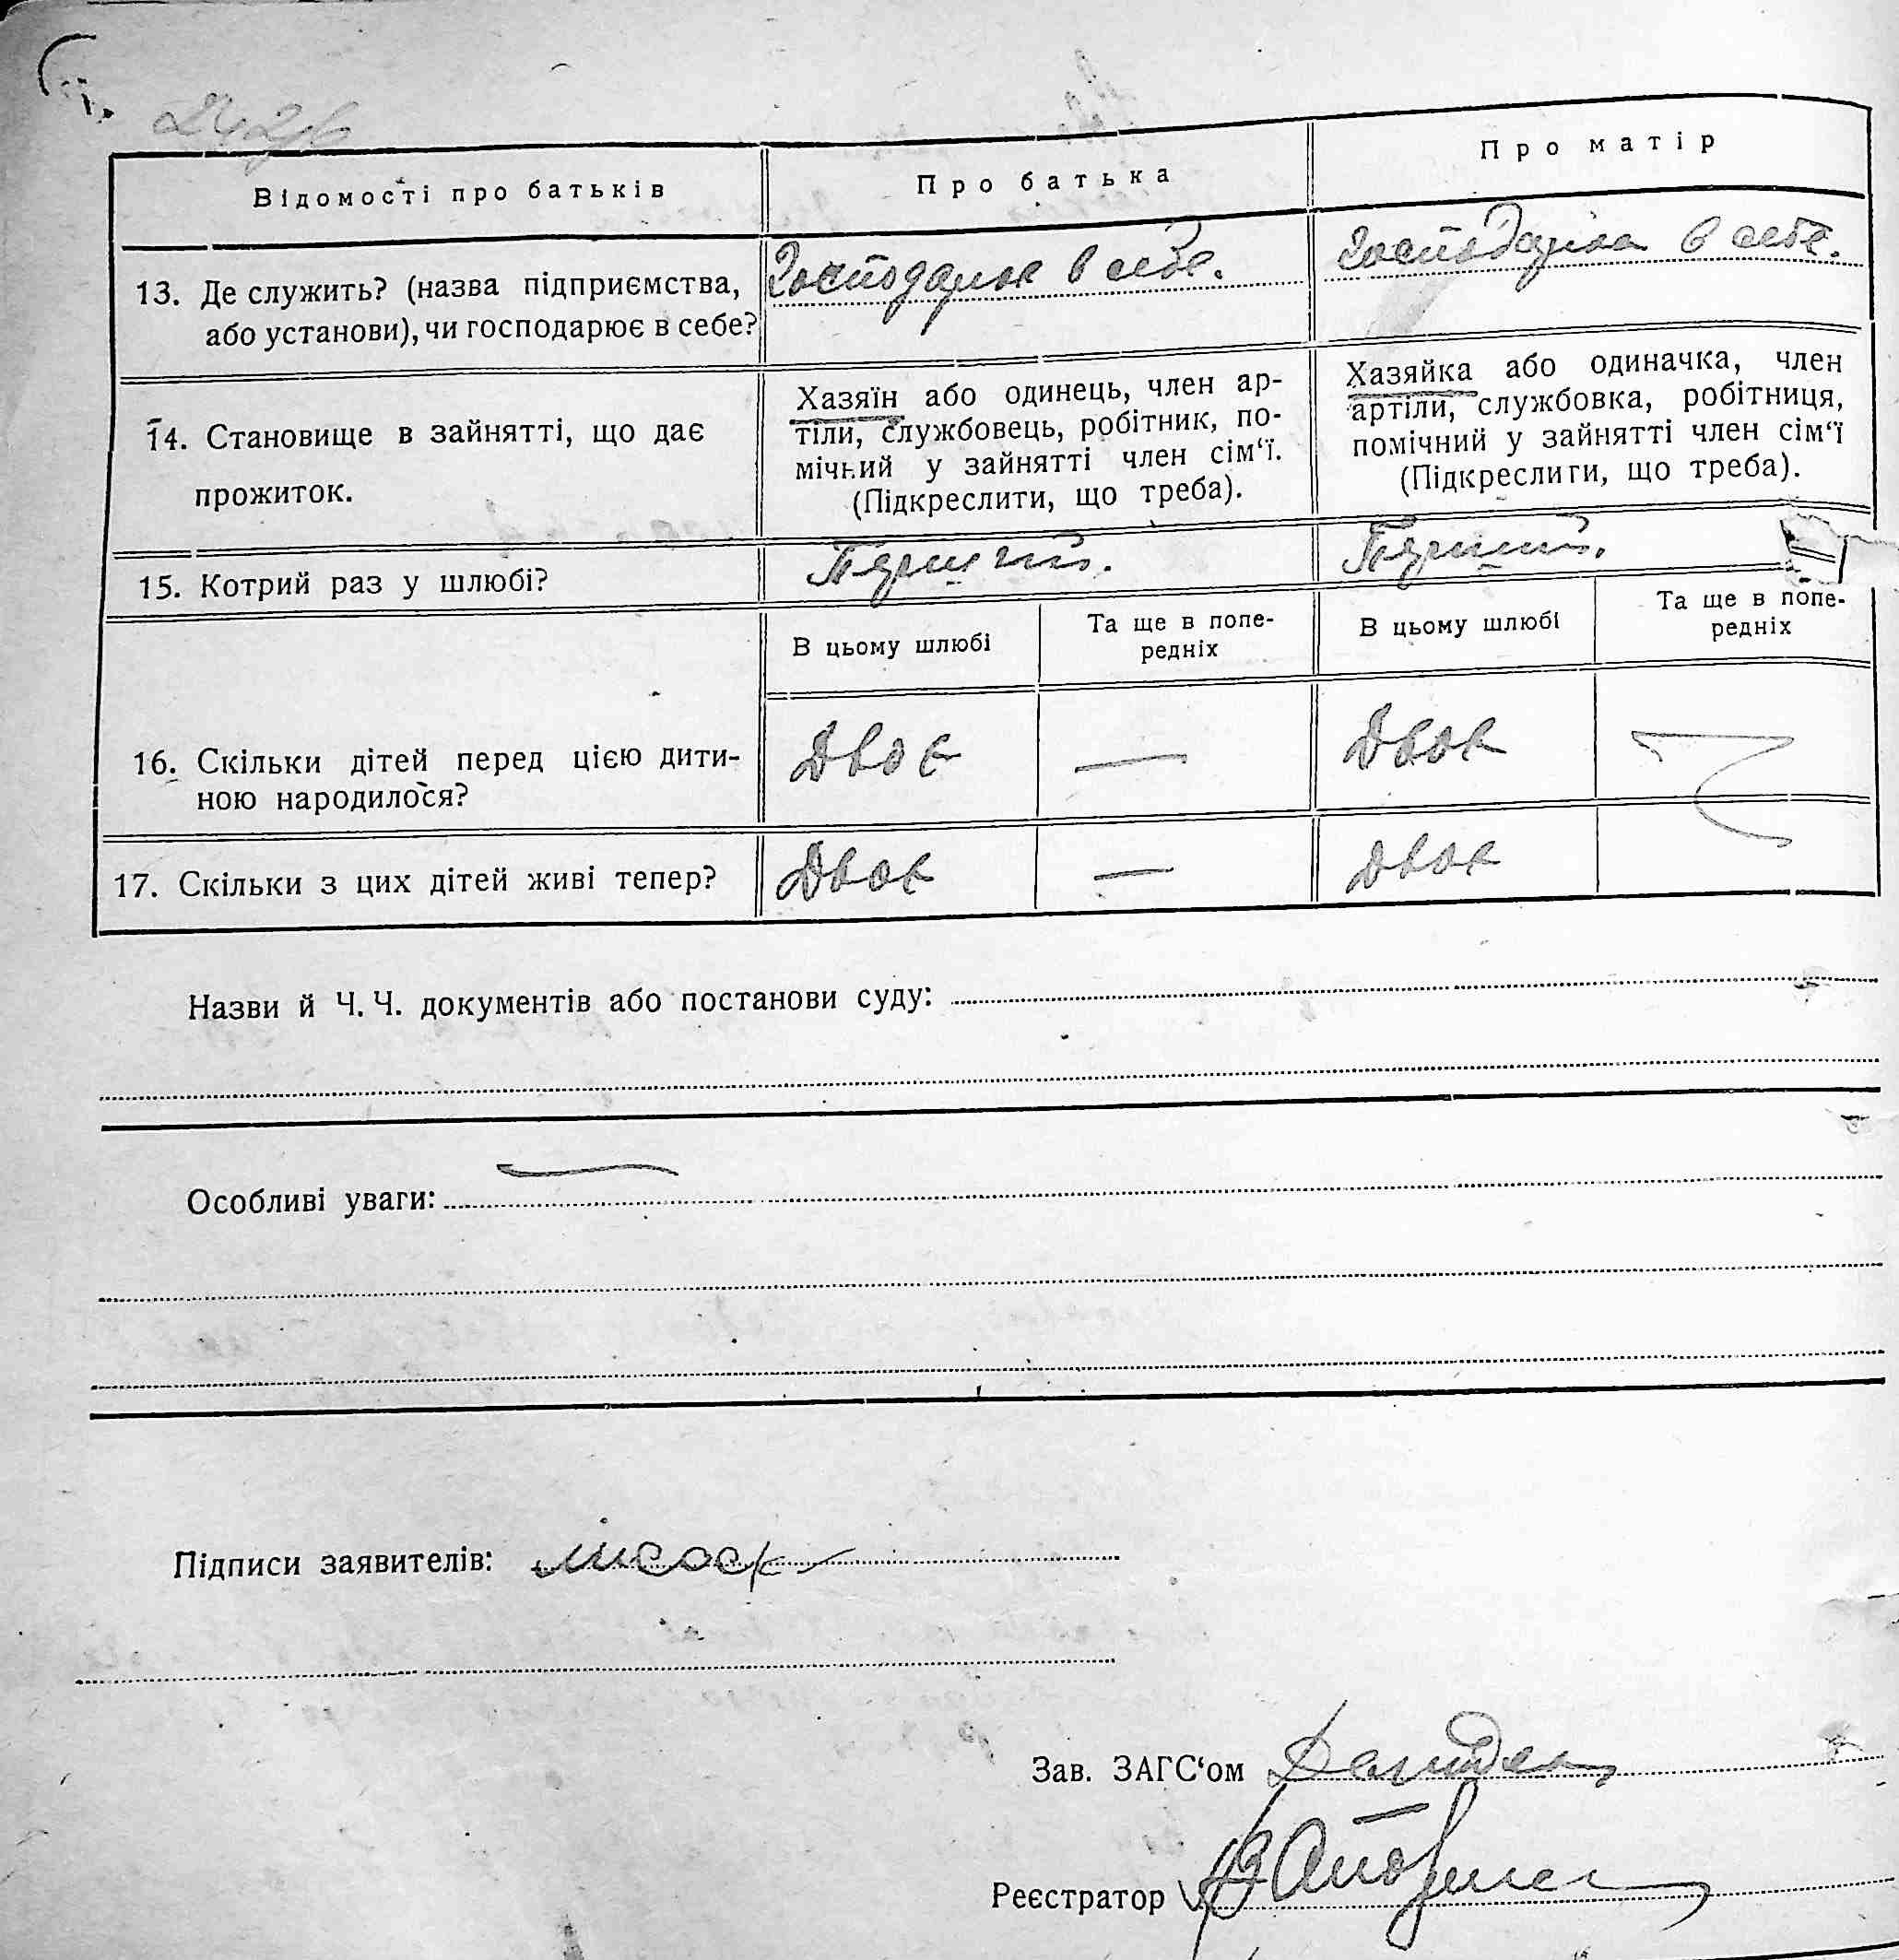 Відомості про батьків
Про батька
Про матір
13. Де служить? (назва підприємства,
або установи), чи господарює в себе?
Господарює в себе.
Господарює в себе.
14. Становище в зайнятті, що дає
прожиток.
Хазяїн або одинець, член ар-
тіли, службовець, робітник, по-
мічний у зайнятті член сім‘ї.
(Підкреслити, що треба).
Хазяйка або одиначка, член
артіли, службовка, робітниця,
помічний у зайнятті член сім‘ї
(Підкреслити, що треба).
15. Котрий раз у шлюбі?
Перший.
Перший.
В цьому шлюбі
Та ще в попе-
редніх
В цьому шлюбі
Та ще в попе-
редніх
16. Скільки дітей перед цією дити-
ною народилося?
Двоє
—
Двоє
17. Скільки з цих дітей живі тепер?
Двоє
—
Двоє
Назви й Ч. Ч. документів або постанови суду:
Особливі уваги:
Підписи заявителів:
Зав. ЗАГС‘ом
Реєстратор